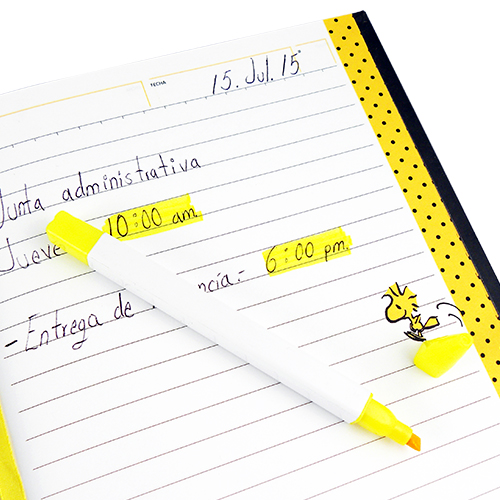 FECHA
15. Jul. 15
Junta administrativa
10:00 am.
- Entrega de 6:00 pm.